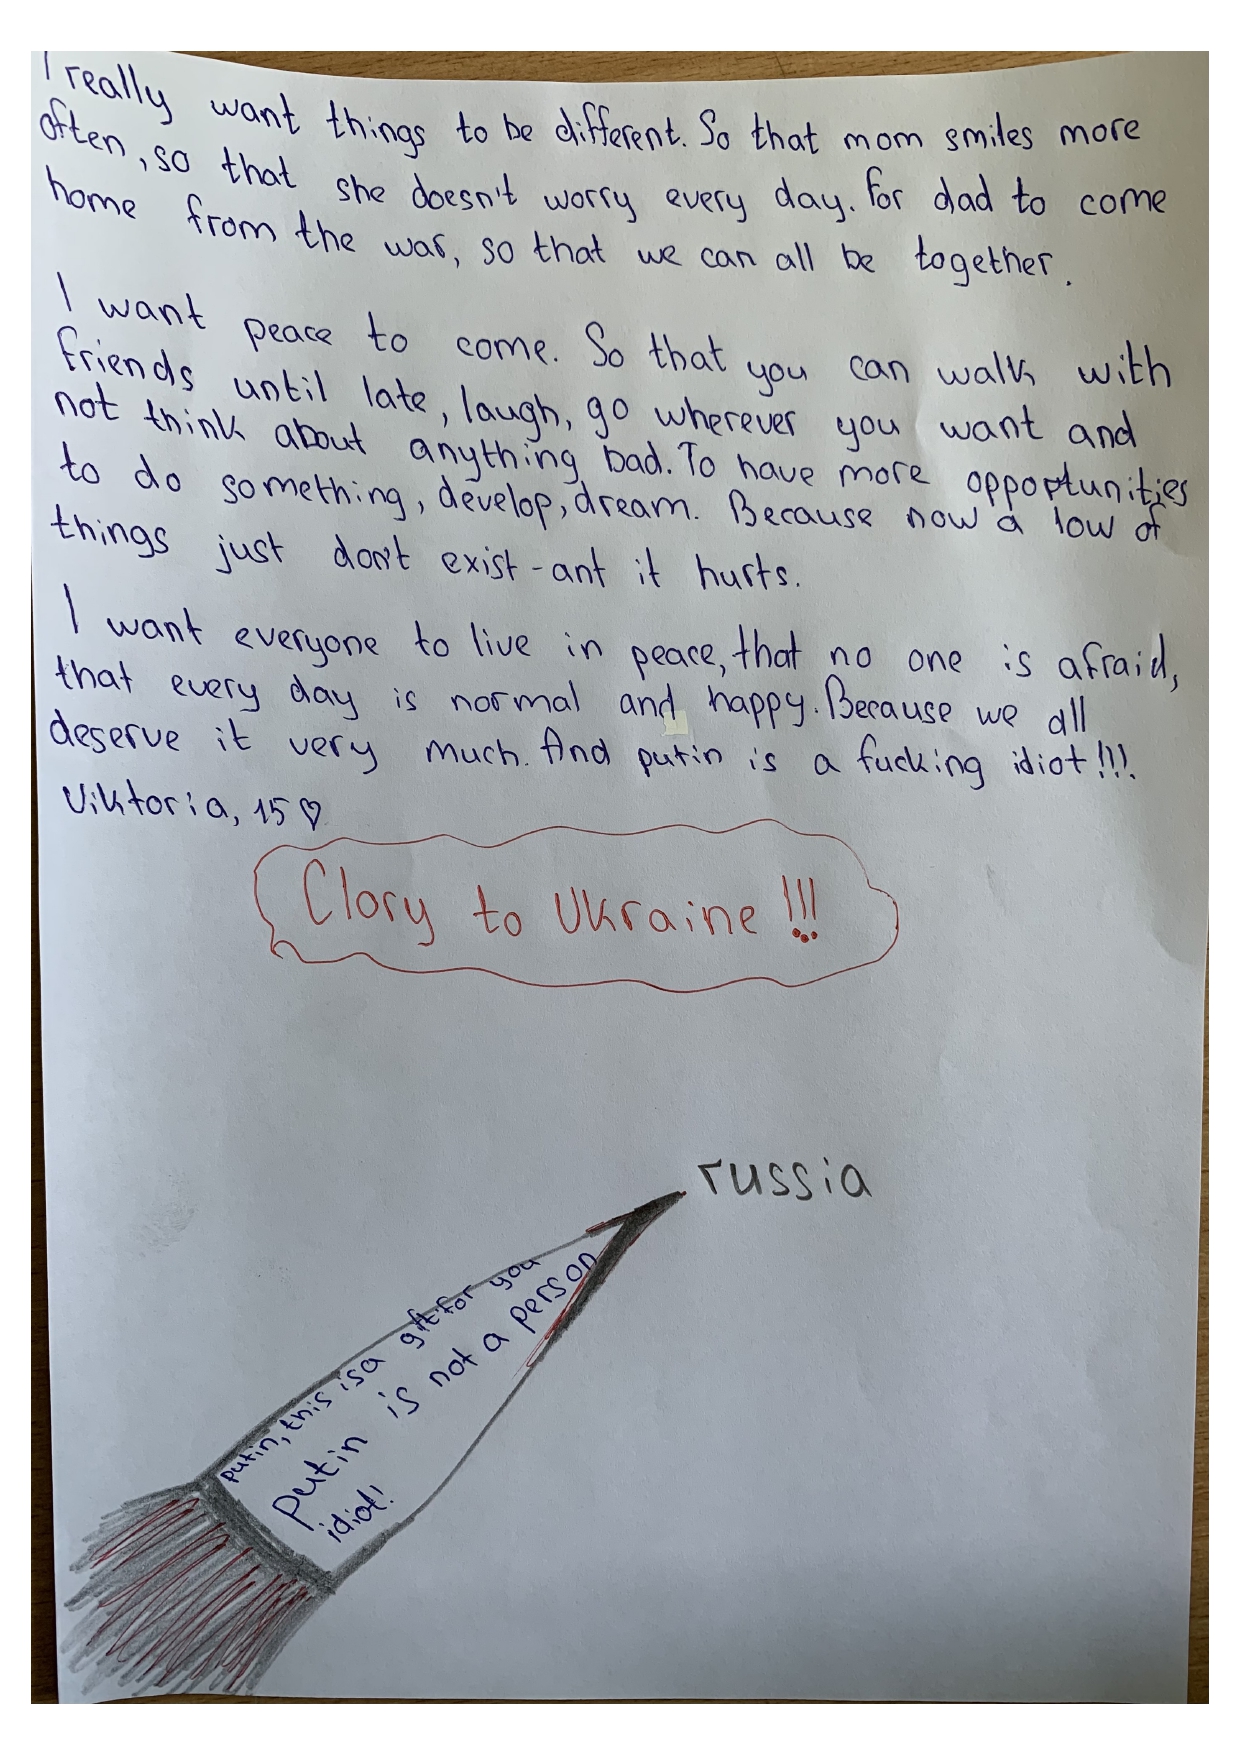 I really want things to be different. So that mom smiles more
often, so that she doesn't worry every day. For dad to come
home from the war, so that we can all be together.
I want peace to come. So that you can walk with
friends until late, laugh, go wherever you want and
not think about anything bad. To have more opportunities
to do something, develop, dream. Because now a low of
things just don't exist - ant it hurts.
I want everyone to live in peace, that no one is afraid,
that every day is normal and happy. Because we all
deserve it very much. And putin is a fucking idiot!!!.
Viktoria, 15 ♡
Clory to Ukraine!!!
russia
putin, this is a gift for you
putin is not a person
idiot!